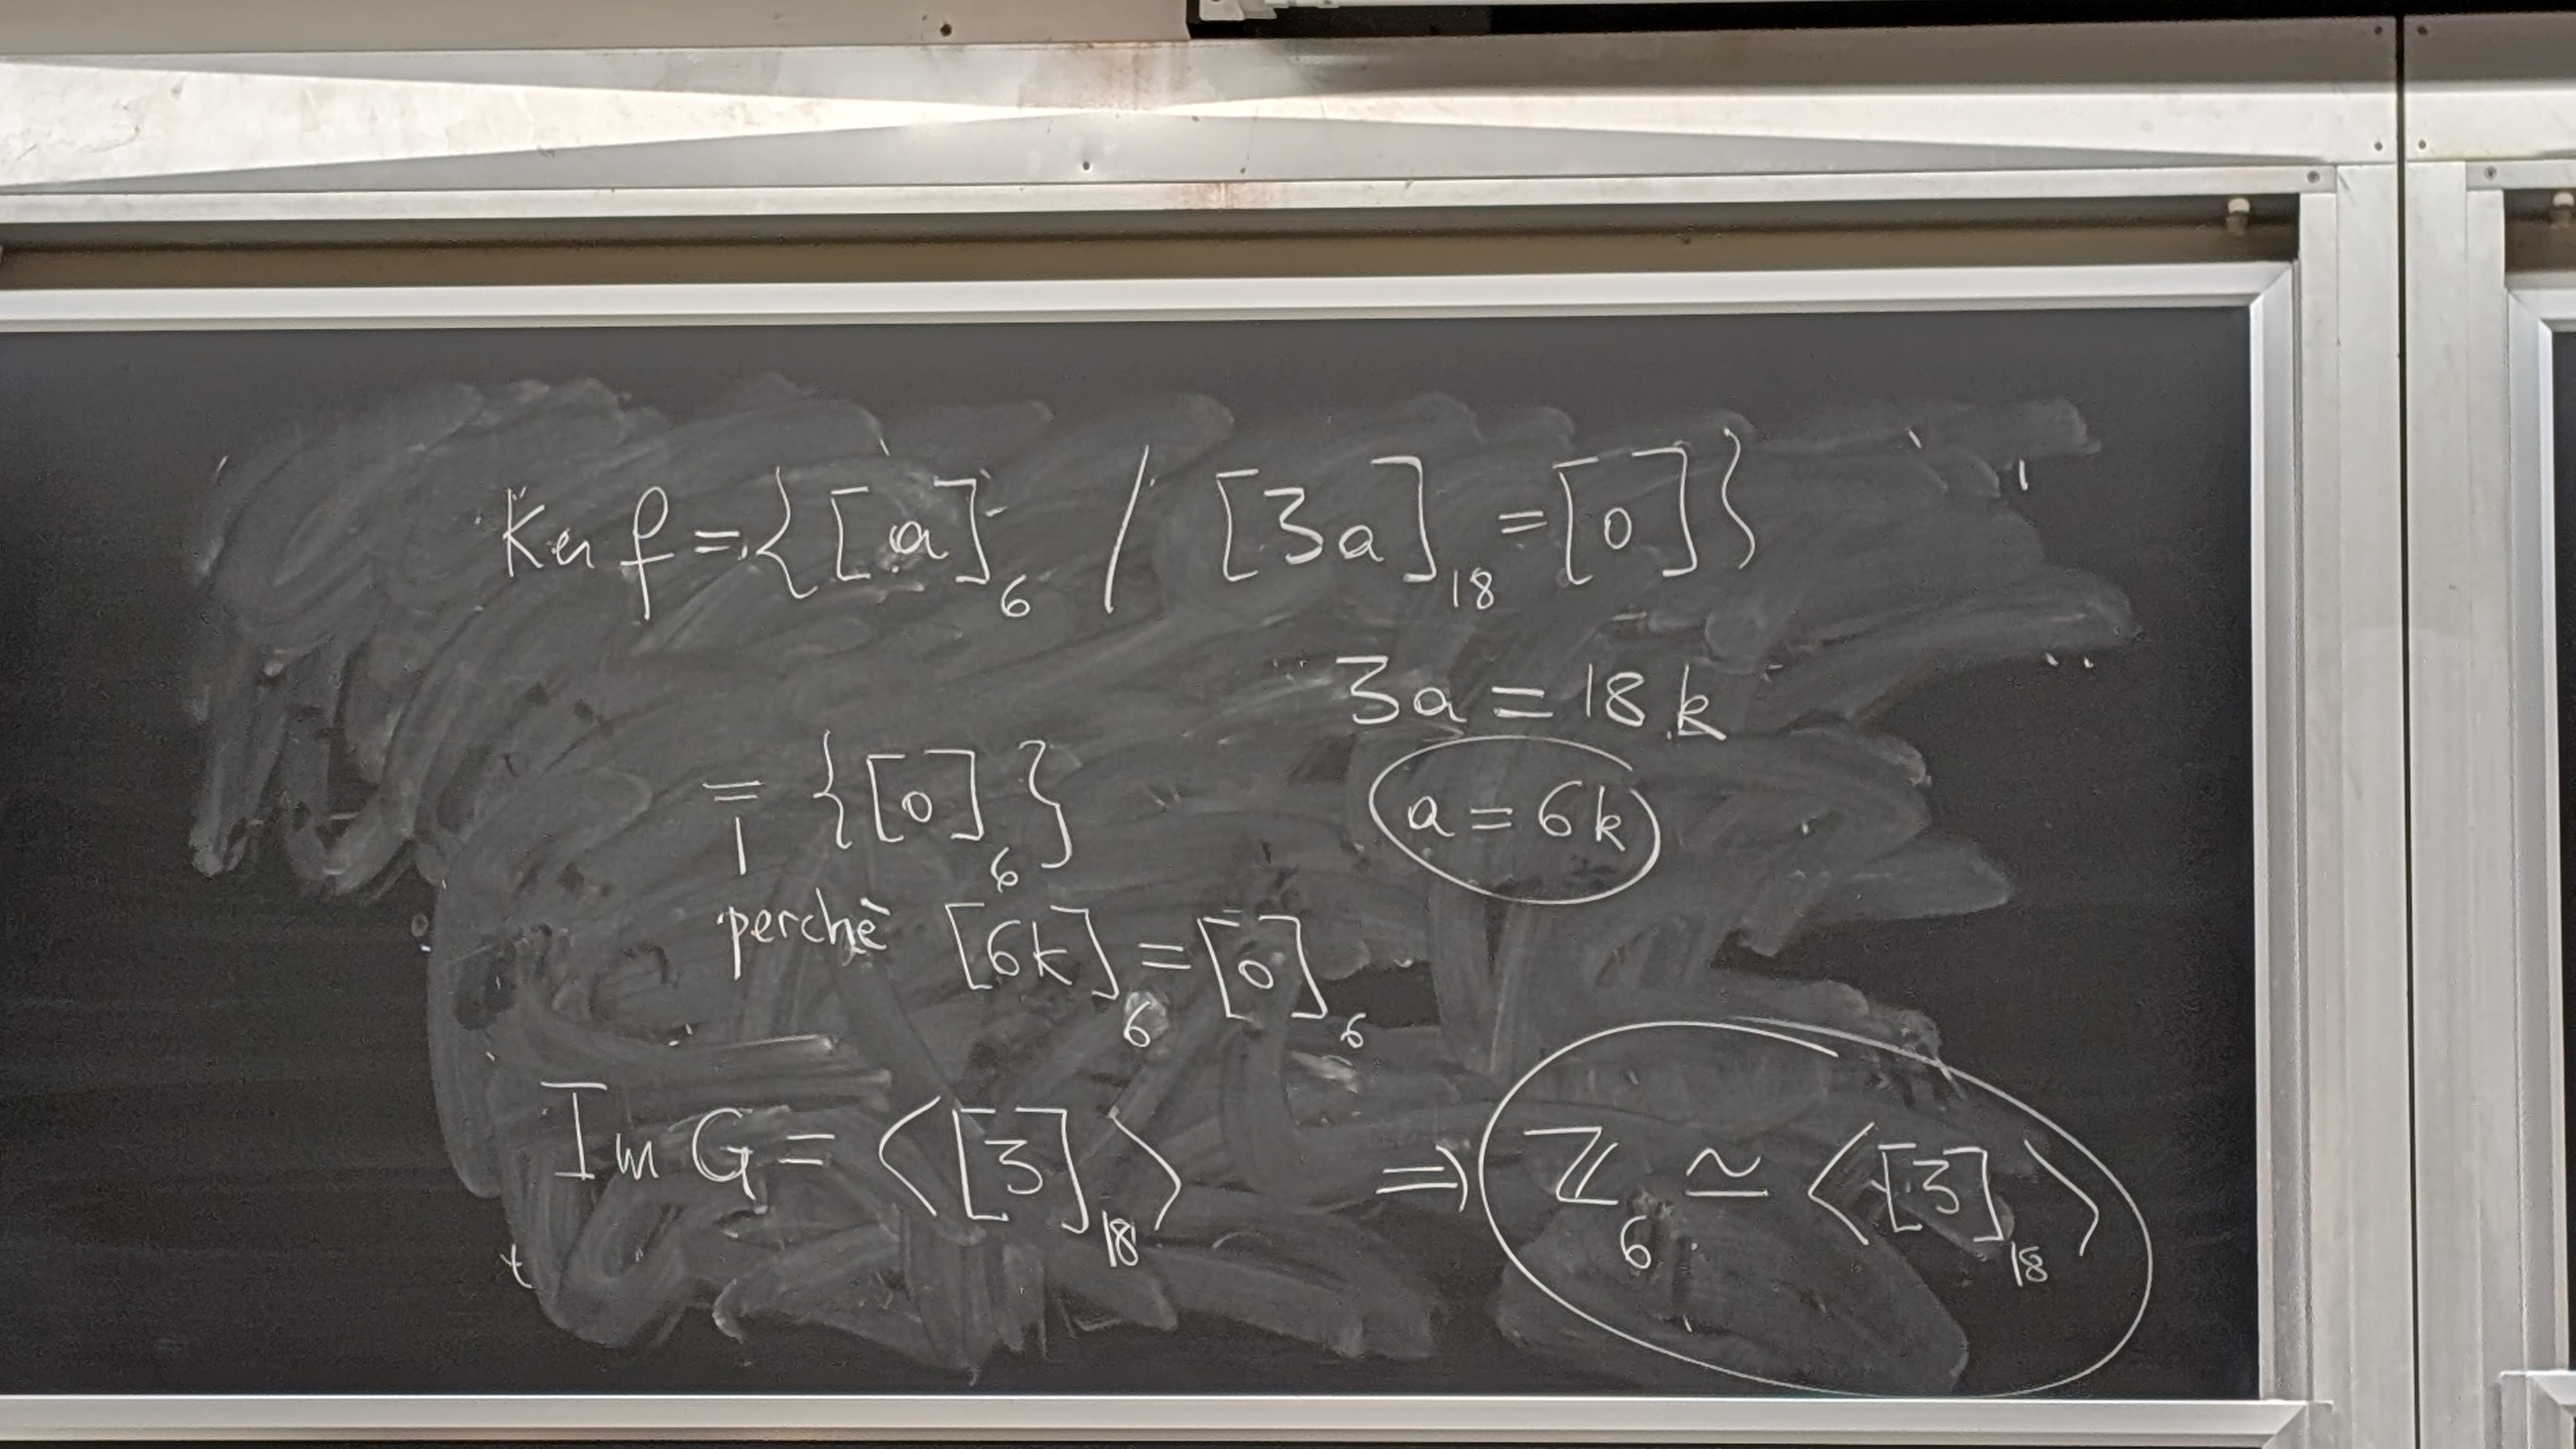 Ker f = {[a]₆ / [3a]₁₈ = [0]}
3a = 18k
= {[0]₆}
a = 6k
perchè [6k]₆ = [0]₆
Im G = ⟨[3]₁₈⟩ ⇒ ℤ₆ ≃ ⟨[3]₁₈⟩